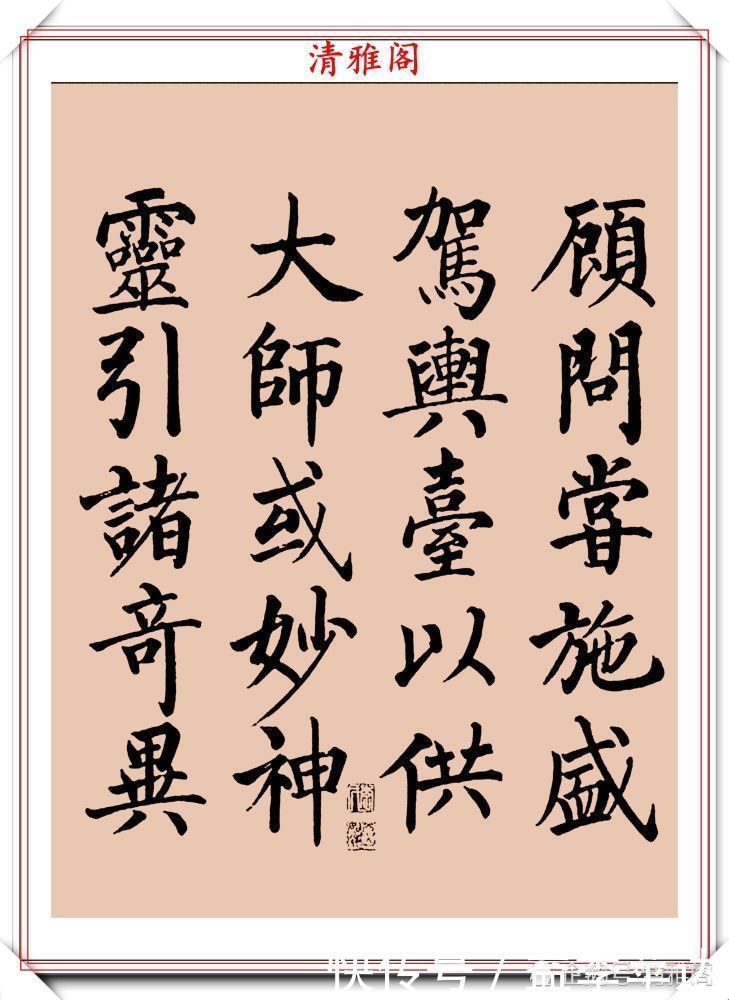 清雅阁
顧問甞施盛
駕輿臺以供
大師或妙神
靈引諸奇異
快传号/